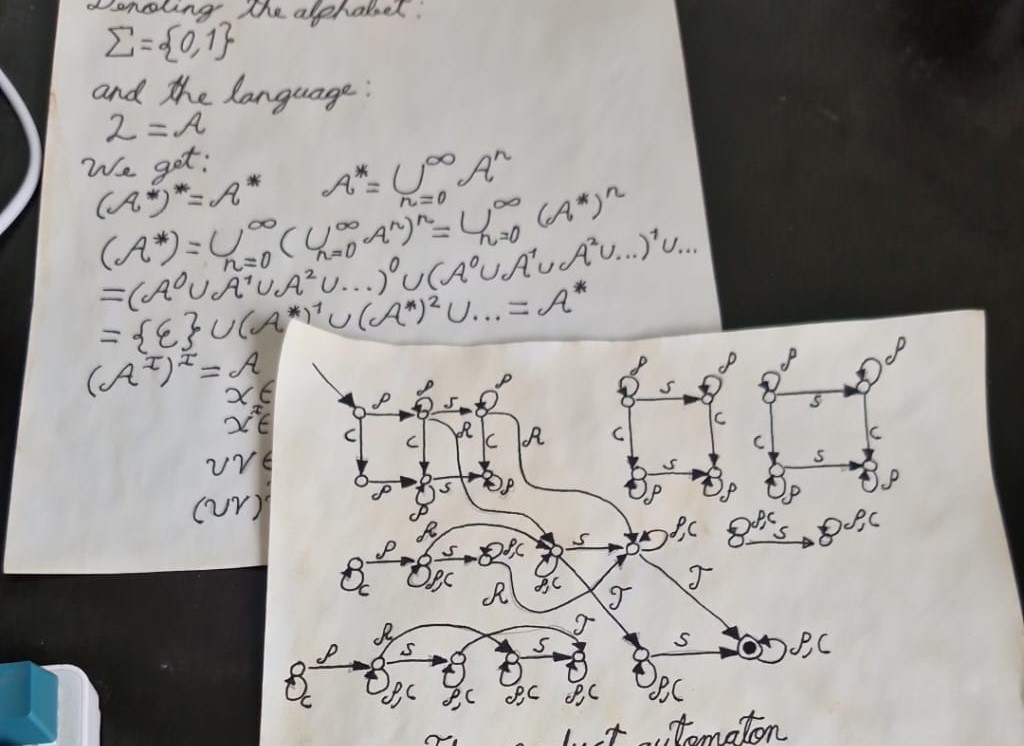 Denoting the alphabet:
Σ={0,1}
and the language:
L = A
We get:
(A*)*= A* A*= ⋃_{n=0}^∞ A^n
(A*) = ⋃_{n=0}^∞ (⋃_{n=0}^∞ A^n)^n = ⋃_{n=0}^∞ (A*)^n
=(A^0 ∪ A^1 ∪ A^2 ∪...)^0 ∪ (A^0 ∪ A^1 ∪ A^2 ∪...)^1 ∪...
= {ε} ∪ (A*)^1 ∪ (A*)^2 ∪... = A*
(A^I)^I = A
x ∈
x^I ∈
uv ∈
(uv)
P P S P
C C R C R
P P S P
P S P
C C
S P P
P S P
C C
S P P
P,C S P,C
R
C P P,C S P,C P,C S P,C
R T T
R T
C P P,C S P,C P,C S P,C
P,C S P,C
automaton